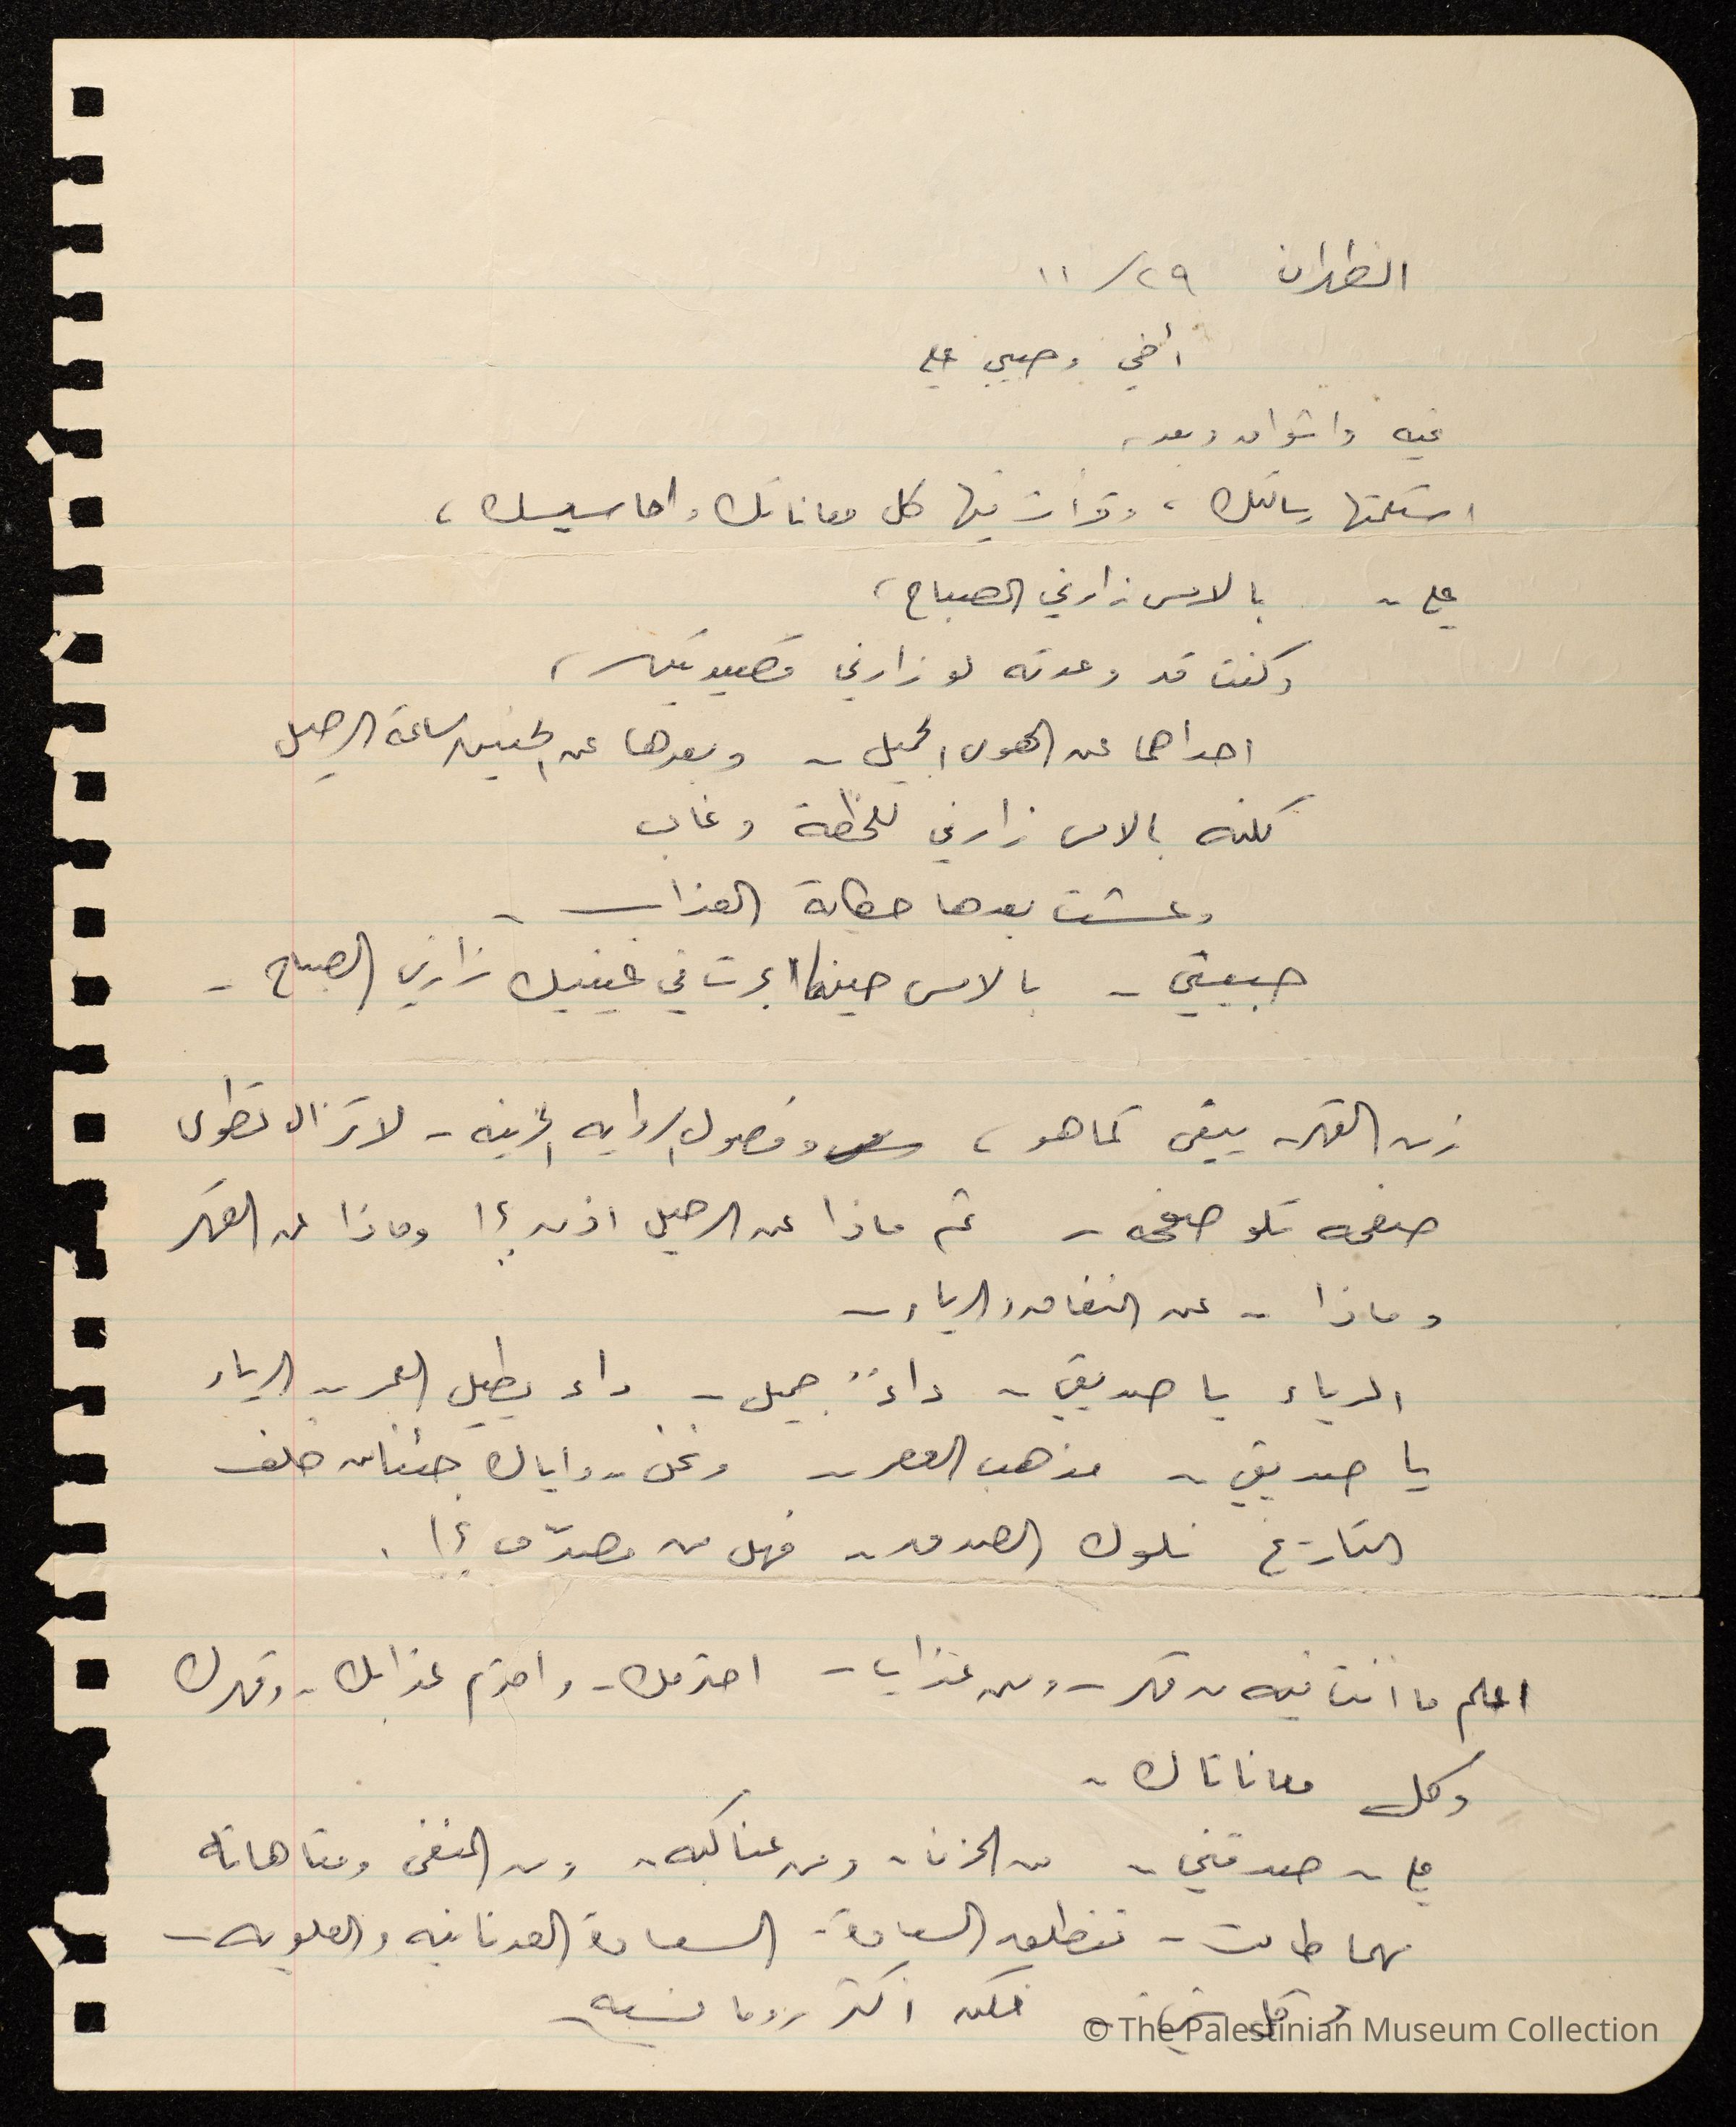 الظهران ٢٩/ ١١
أخي وحبيبي علي
تحيه واشواق وبعد،
استلمتها رسالتك، وقرأت فيها كل معاناتك واحاسيسك،
علي - بالامس زارني الصباح،
وكنت قد وعدته لو زارني قصيدتين،
احداهما عن الهوى الجميل - وبعدها عن الحنين ساعة الرحيل
لكنه بالامس زارني للحظة وغاب
وعشت بعدها حكاية العذاب -
حبيبتي - بالامس حينما ابحرت في عينيك زارني الصباح -
زمن القهر يبقى كما هو، وفصول الروايه الحزينه - لا تزال تطوى
صفحه تلو صفحه - ثم ماذا عن الرحيل اذن؟! وماذا عن القهر
وماذا - عن النفاق والرياء -
الرياء يا صديقي - داءٌ جميل - داء يطيل العمر - الرياء
يا صديقي - مذهب العصر - ونحن - واياك جئنا من خلف
التاريخ نلوك الصدق - فهل من مصدّق؟!.
اعلم ما انت فيه من قهر - ومن عذاب - احترمك - واحترم عذابك - وقهرك
وكل معاناتاك -
علي - صدقني - من الحزن - ومن عناكبه - ومن المنفى ومتاهاته
مهما طالت - تنطلق السعادة - السعادة العدنانيه والعلويه -
فلكن اكثر رومانسيه -
© The Palestinian Museum Collection